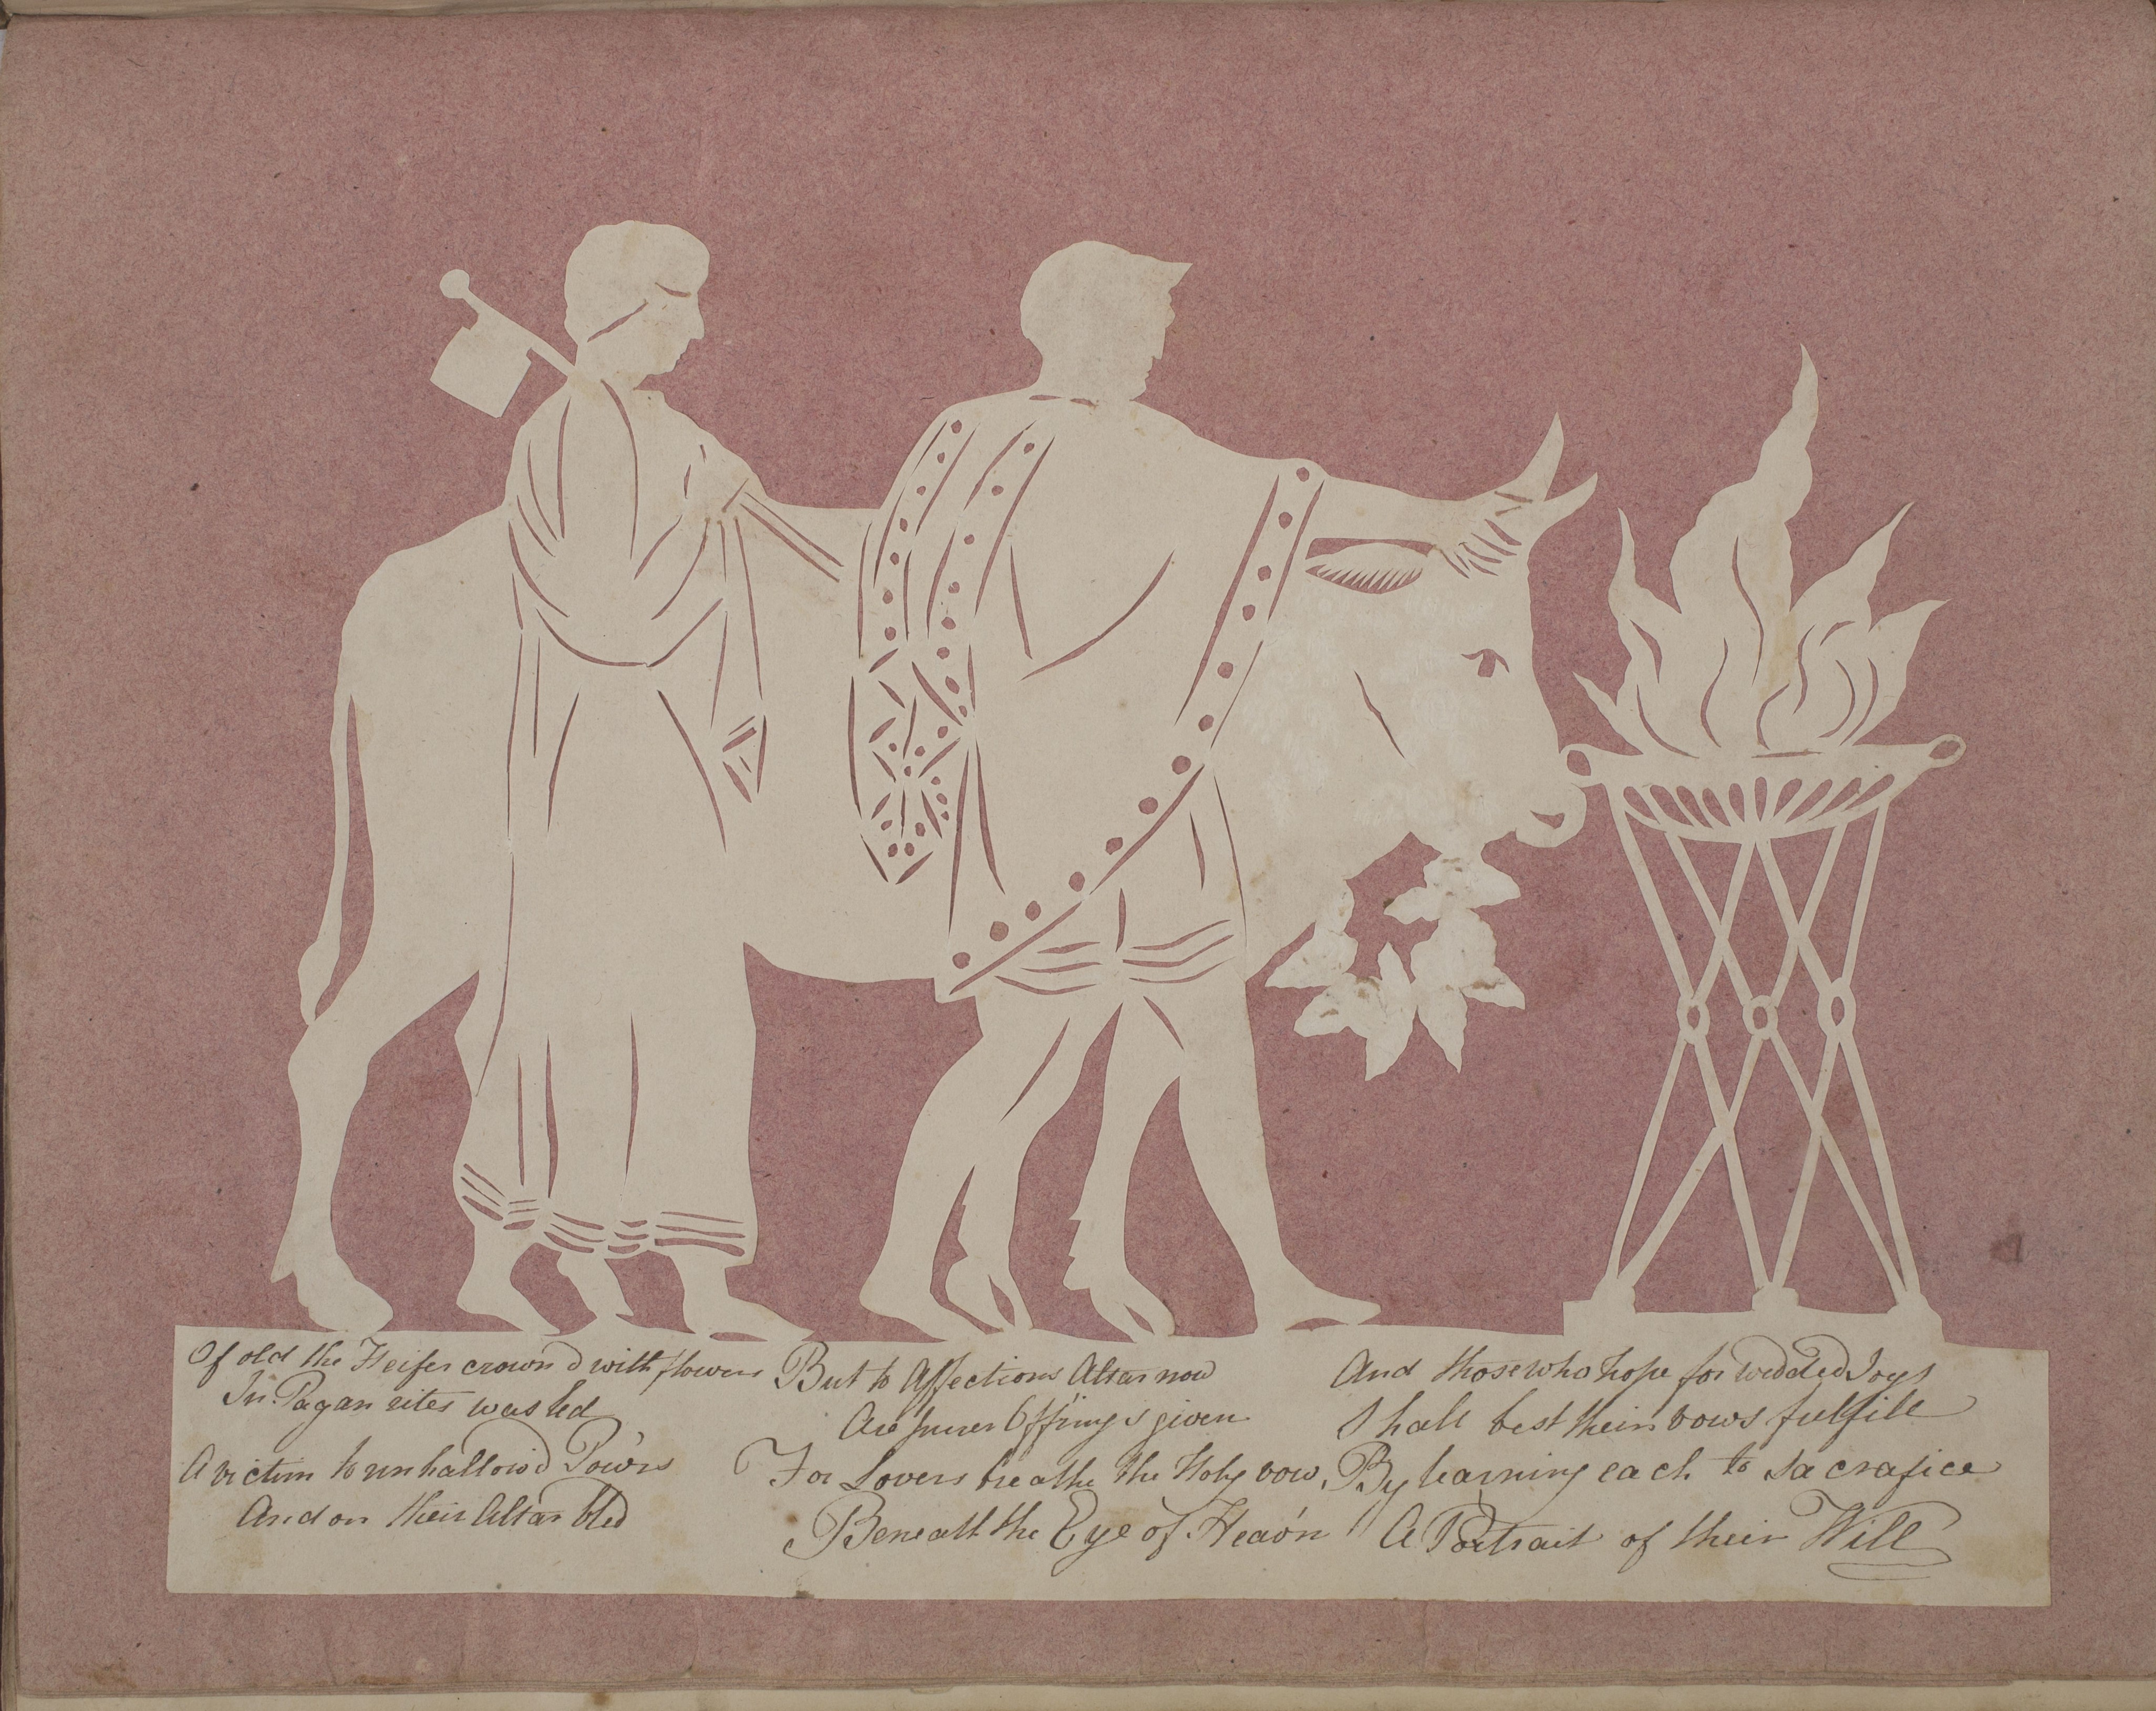 Of old the Heifer crown'd with flowers
In Pagan rites was led
A victim to unhallow'd Pow'rs
And on their Altar bled
But to Affections Altar now
Are purer Off'rings given
For Lovers breathe the Holy vow,
Beneath the Eye of Heav'n
And those who hope for wedded Joys
Shall best their vows fulfill
By learning each to sacrafice
A Portrait of their Will